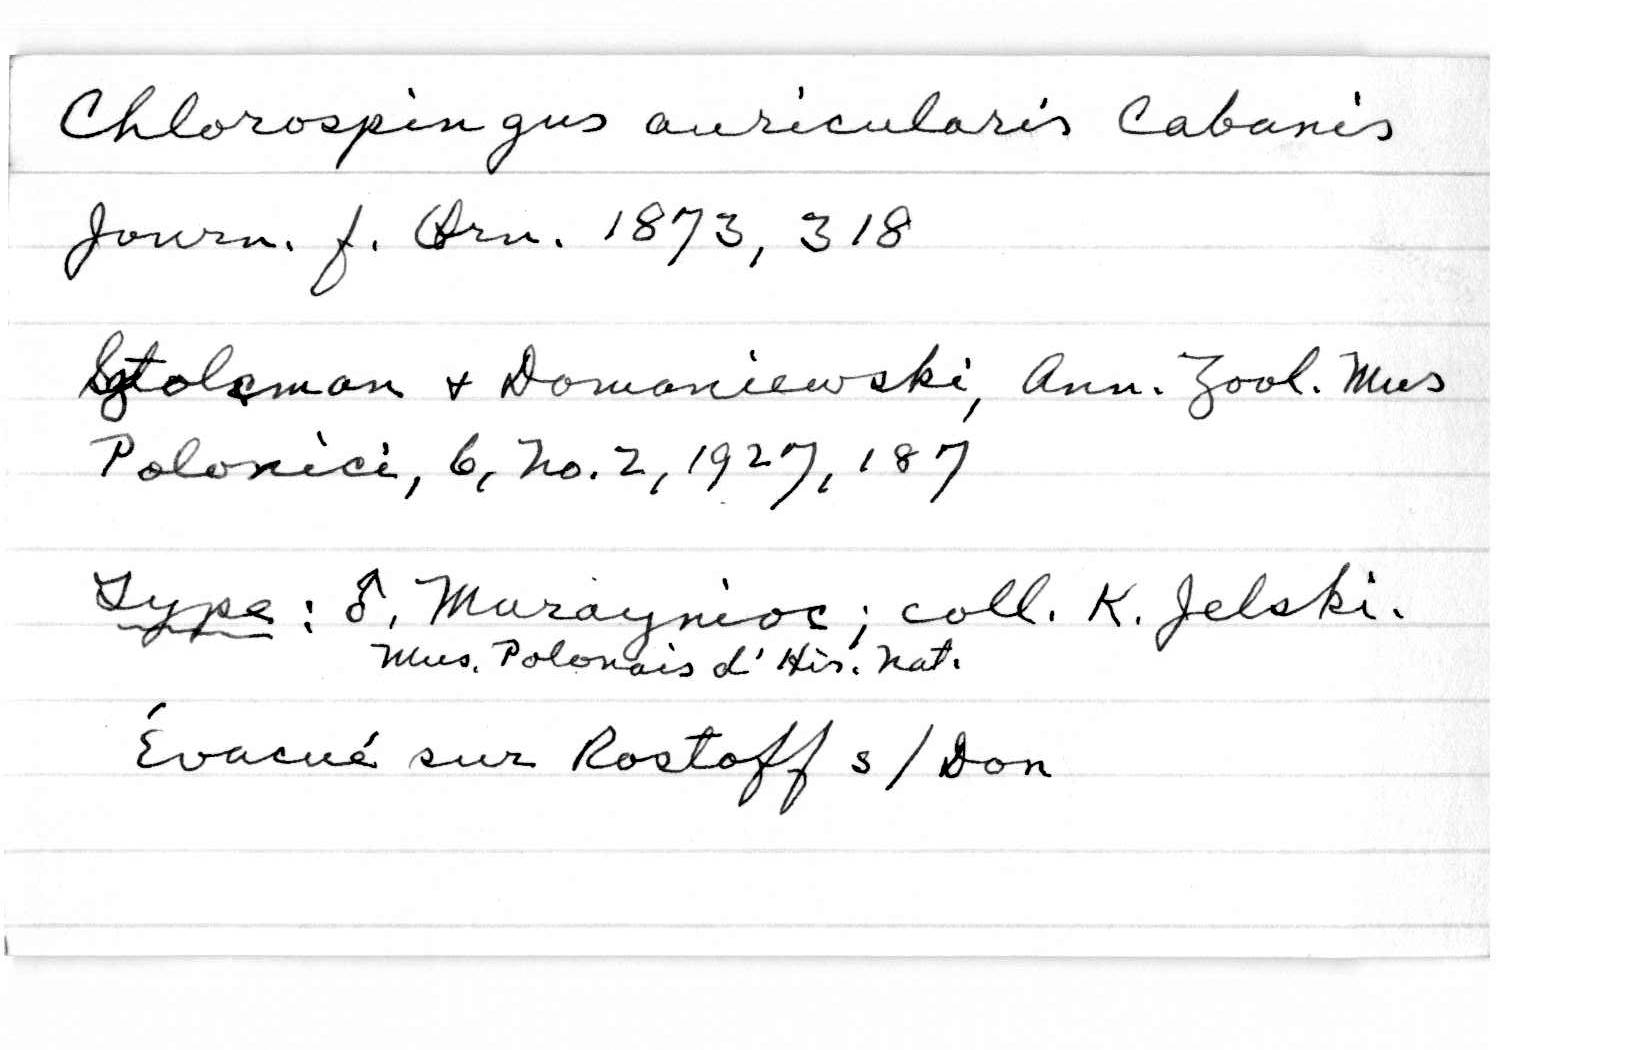 Chlorospingus auricularis Cabanis
Journ. f. Orn. 1873, 318
Sztolcman & Domaniewski, Ann. Zool. Mus
Polonici, 6, No. 2, 1927, 187
Type: ♂, Maraynioc; coll. K. Jelski.
Mus. Polonais d'His. Nat.
Évacué sur Rostoff s/Don